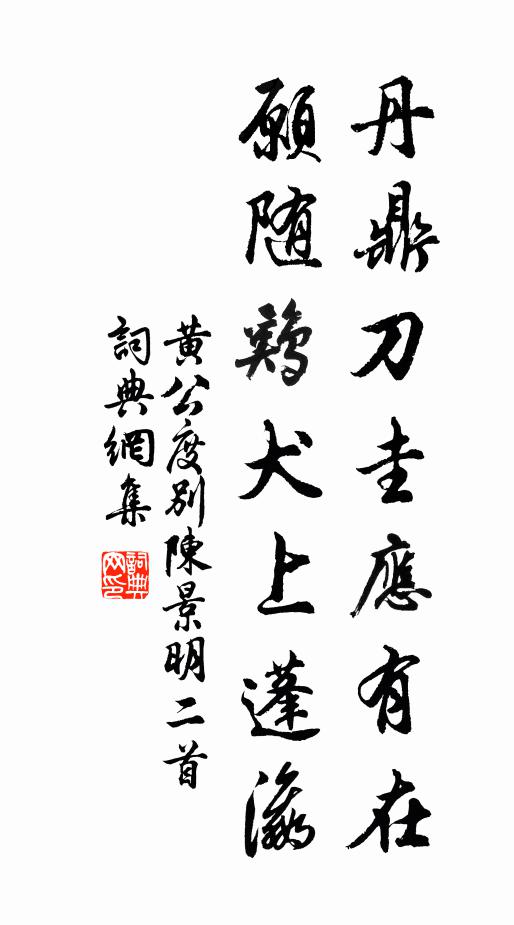 丹鼎刀圭應有在
願随鷄犬上蓬瀛
黄公度别陳景明二首
詞典網集
詞典网印